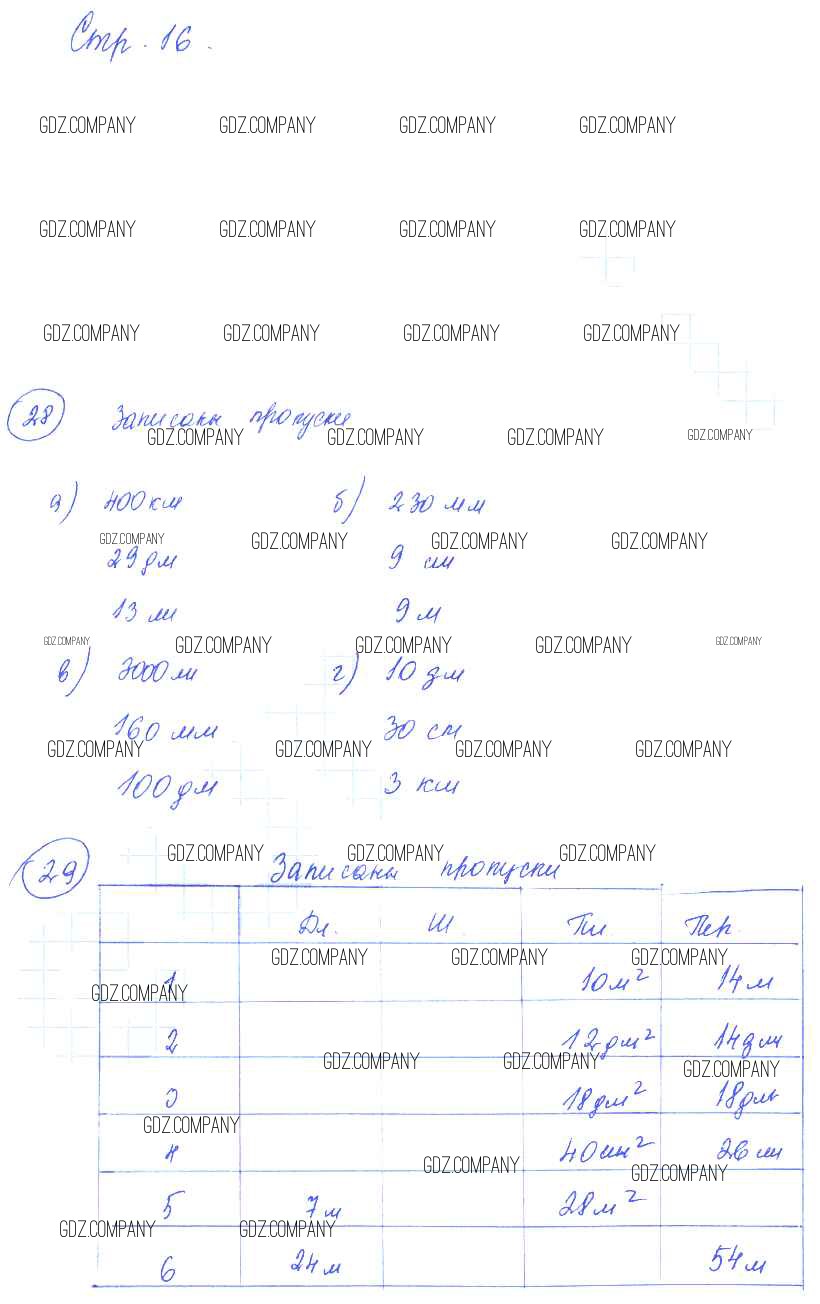 Стр. 16.
GDZ.COMPANY GDZ.COMPANY GDZ.COMPANY GDZ.COMPANY
GDZ.COMPANY GDZ.COMPANY GDZ.COMPANY GDZ.COMPANY
GDZ.COMPANY GDZ.COMPANY GDZ.COMPANY GDZ.COMPANY
28 Записаны пропуски
GDZ.COMPANY GDZ.COMPANY GDZ.COMPANY GDZ.COMPANY
а) 400 км б) 230 мм
GDZ.COMPANY GDZ.COMPANY GDZ.COMPANY GDZ.COMPANY
29 дм 9 см
13 м 9 м
GDZ.COMPANY GDZ.COMPANY GDZ.COMPANY GDZ.COMPANY GDZ.COMPANY
в) 7000 м г) 10 дм
160 мм 30 см
GDZ.COMPANY GDZ.COMPANY GDZ.COMPANY GDZ.COMPANY
100 дм 3 км
GDZ.COMPANY GDZ.COMPANY GDZ.COMPANY
29 Записаны пропуски
Дл. Ш. Пл Пер.
GDZ.COMPANY GDZ.COMPANY GDZ.COMPANY
1 10 м² 14 м
GDZ.COMPANY
2 12 дм² 14 дм
GDZ.COMPANY GDZ.COMPANY GDZ.COMPANY
3 18 дм² 18 дм
GDZ.COMPANY
4 40 см² 26 см
GDZ.COMPANY GDZ.COMPANY
5 7 м 28 м²
GDZ.COMPANY GDZ.COMPANY
6 24 м 54 м